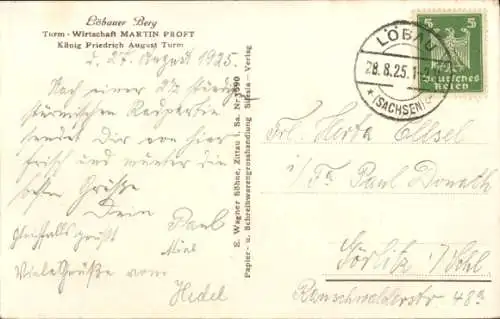 Löbauer Berg
Turm - Wirtschaft MARTIN PROFT
König Friedrich August Turm
d. 27. August 1925.
Nach einer 2½ stündg.
stürmischen
sendet Dir von hier
frisch und munter die
besten Grüße
Dein Paul
gleichfalls grüßt
Viele Grüße von
Hedel
E. Wagner Söhne, Zittau i. Sa. Nr. 3590
Papier- u. Schreibwarengrosshandlung Silesia - Verlag
LÖBAU
28.8.25.1
* (SACHSEN)
5 5
Deutsches
Reich
Frl. Herta
i/Fa Paul Donath
Görlitz i/Schl.
Rauschwalderstr 48a